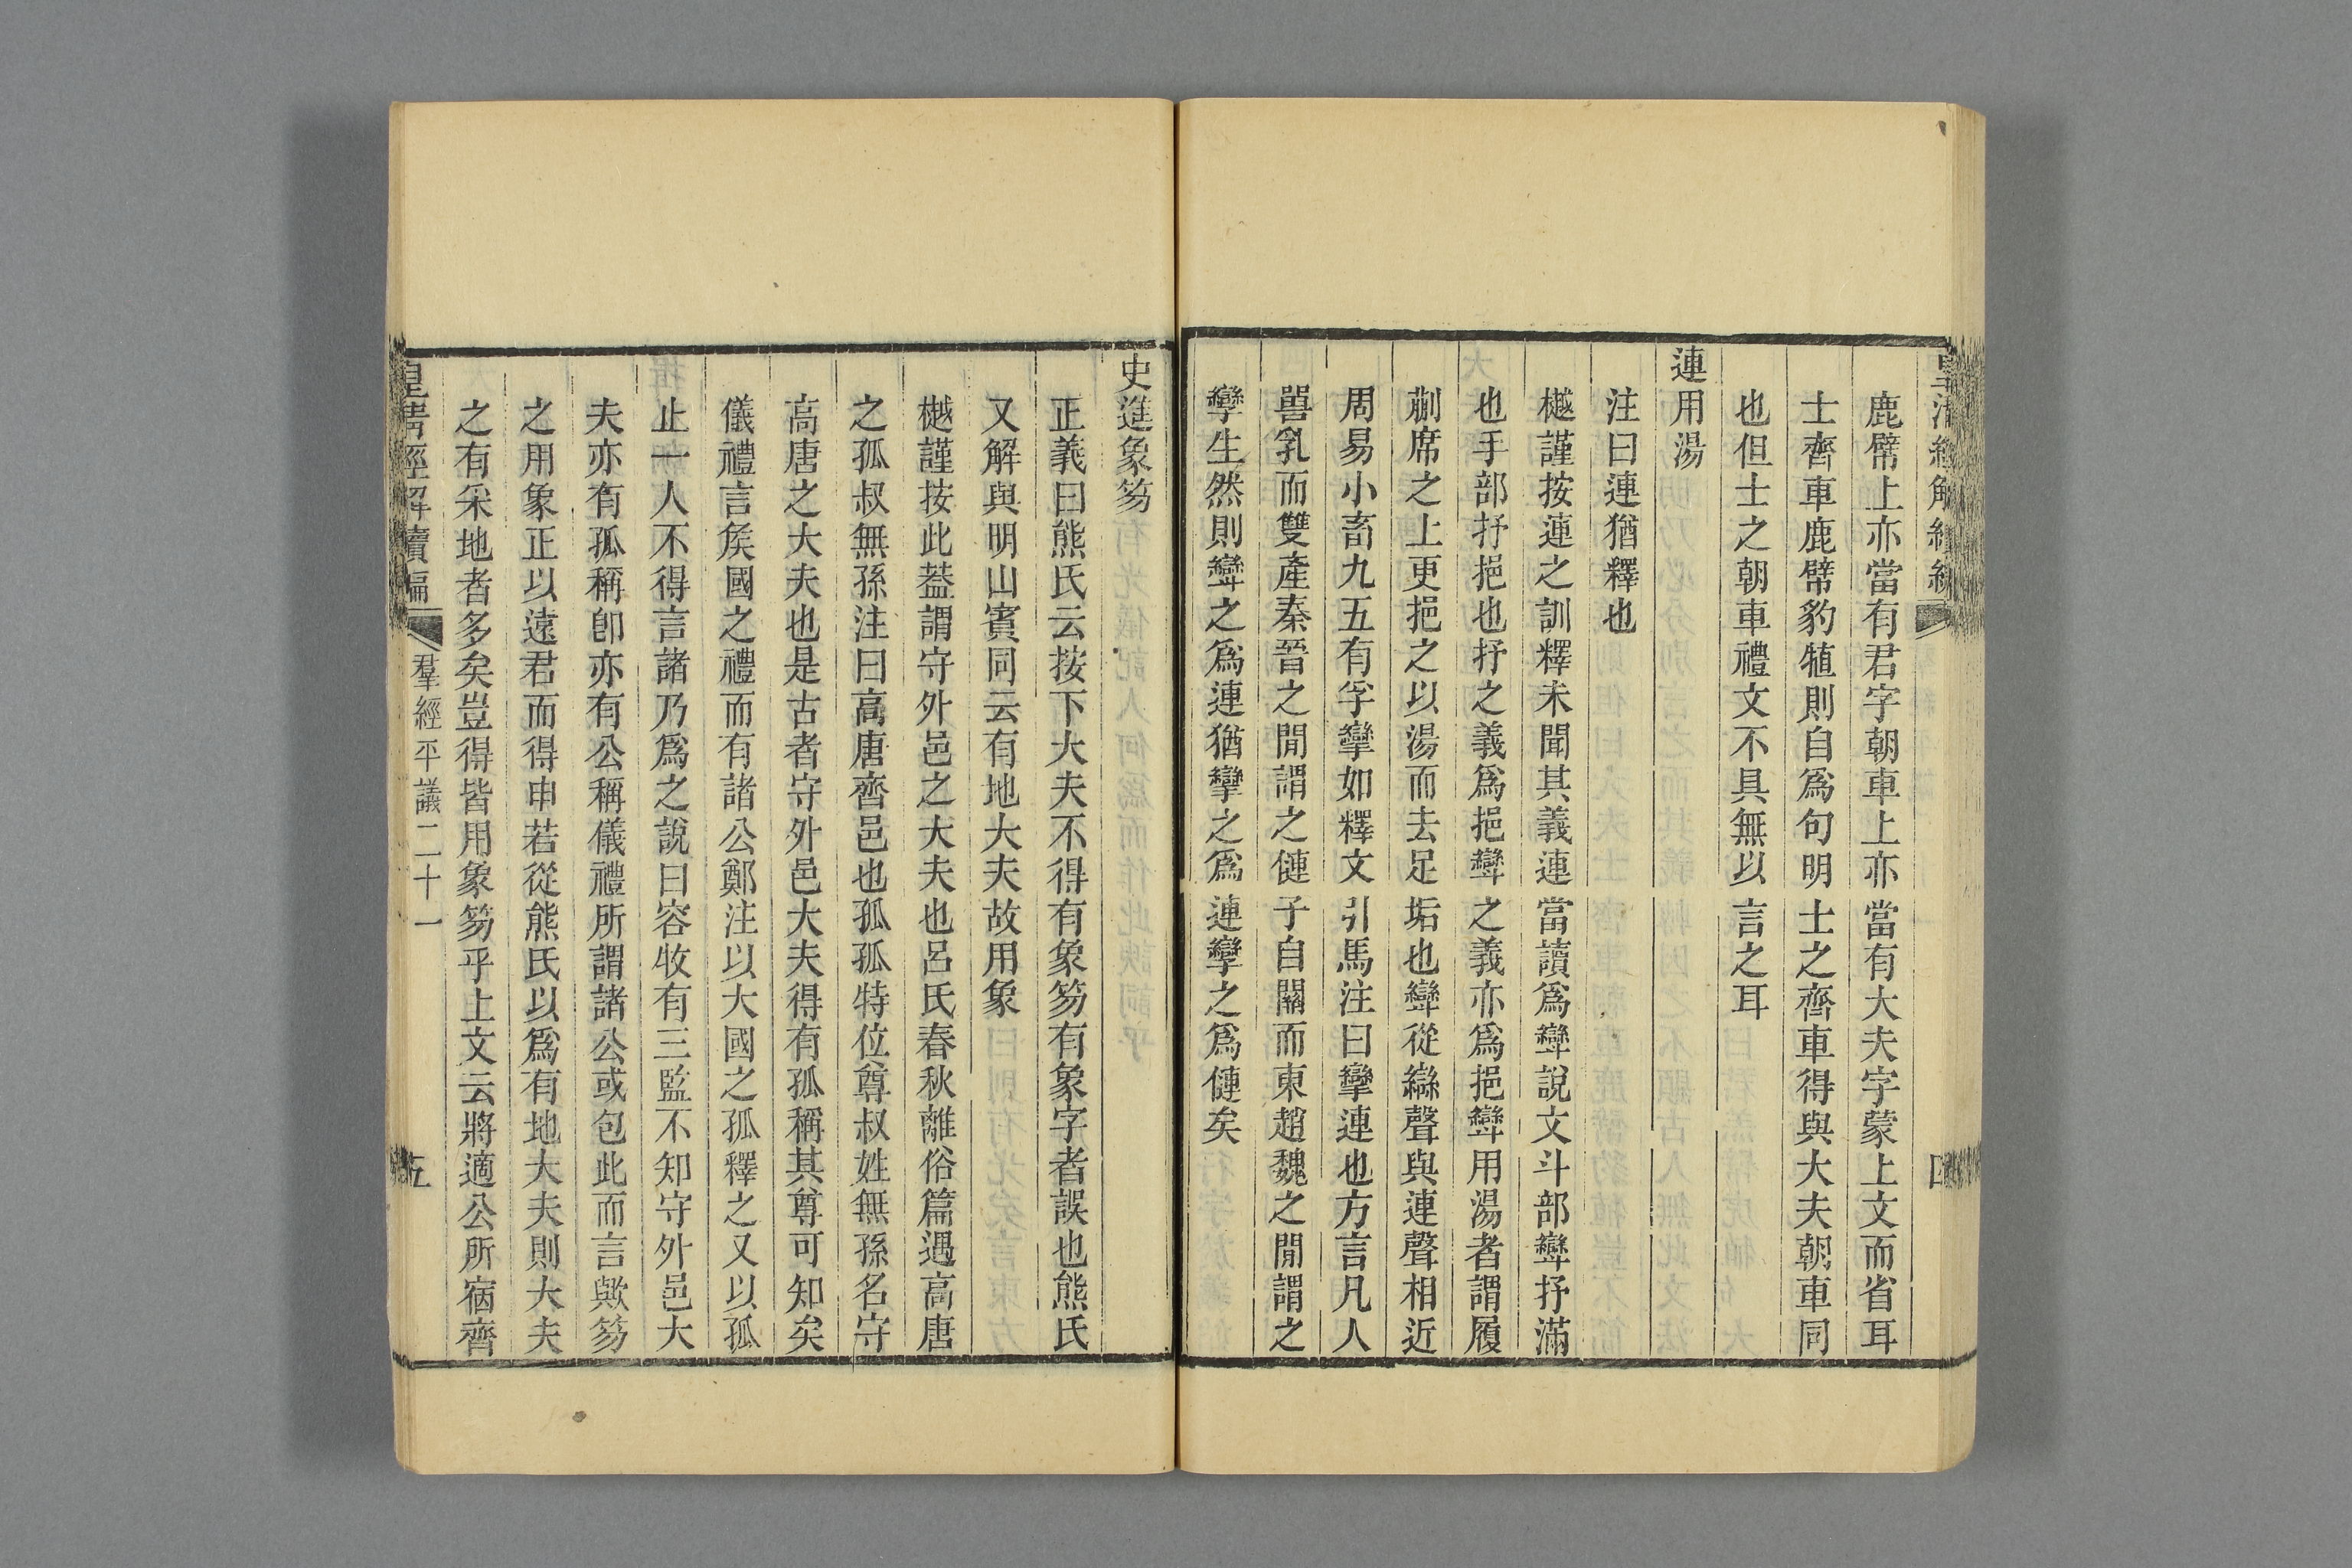 鹿幦上亦當有君字朝車上亦當有大夫字蒙上文而省耳
士齊車鹿幦豹犆則自爲句明士之齊車得與大夫朝車同
也但士之朝車禮文不具無以言之耳
連用湯
注曰連猶釋也
樾謹按連之訓釋未聞其義連當讀爲䜌說文斗部䜌抒滿
也手部抒挹也抒之義爲挹䜌之義亦爲挹䜌用湯者謂履
蒯席之上更挹之以湯而去足垢也䜌從䜌聲與連聲相近
周易小畜九五有孚攣如釋文引馬注曰攣連也方言凡人
嘼乳而雙產秦晉之閒謂之健子自關而東趙魏之閒謂之
孿生然則䜌之爲連猶攣之爲連孿之爲健矣
史進象笏
正義曰熊氏云按下大夫不得有象笏有象字者誤也熊氏
又解與明山賓同云有地大夫故用象
樾謹按此葢謂守外邑之大夫也呂氏春秋離俗篇遇高唐
之孤叔無孫注曰高唐齊邑也孤孤特位尊叔姓無孫名守
高唐之大夫也是古者守外邑大夫得有孤稱其尊可知矣
儀禮言矦國之禮而有諸公鄭注以大國之孤釋之又以孤
止一人不得言諸乃爲之說曰容牧有三監不知守外邑大
夫亦有孤稱卽亦有公稱儀禮所謂諸公或包此而言歟笏
之用象正以遠君而得申若從熊氏以爲有地大夫則大夫
之有采地者多矣豈得皆用象笏乎上文云將適公所宿齊
皇淸經解續編
羣經平議二十一
五